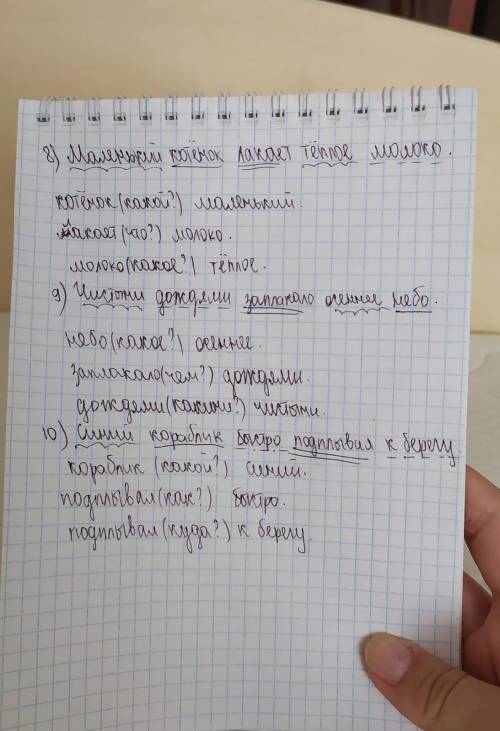 8) Маленький котёнок лакает тёплое молоко.
котёнок (какой?) маленький.
лакает (что?) молоко.
молоко (какое?) тёплое.
9) Чистыми дождями заплакало осеннее небо.
небо (какое?) осеннее.
заплакало (чем?) дождями.
дождями (какими?) чистыми.
10) Синий кораблик быстро подплывал к берегу
кораблик (какой?) синий.
подплывал (как?) быстро.
подплывал (куда?) к берегу.